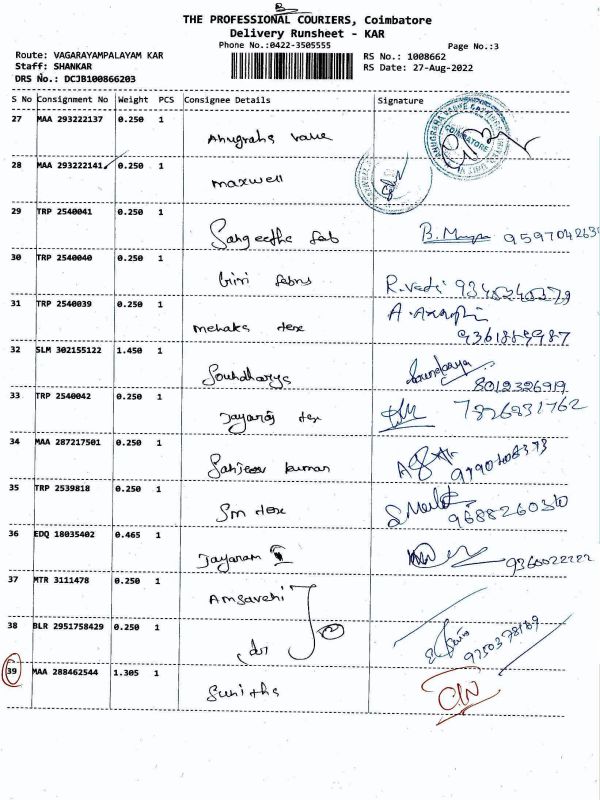 B
THE PROFESSIONAL COURIERS, Coimbatore
Delivery Runsheet - KAR
Phone No.:0422-3505555
Page No.:3
Route: VAGARAYAMPALAYAM KAR
RS No.: 1008662
Staff: SHANKAR
RS Date: 27-Aug-2022
DRS No.: DCJB100866203
S No Consignment No Weight PCS Consignee Details Signature
27 MAA 293222137 0.250 1
Anugraha Valve
COIMBATORE
28 MAA 293222141 0.250 1
maxwell
29 TRP 2540041 0.250 1
Sangeetha fab B.
30 TRP 2540040 0.250 1
Giri fabns R.
31 TRP 2540039 0.250 1
A.
mehaks tex
9361889987
32 SLM 302155122 1.450 1
Soundharya
8012326919
33 TRP 2540042 0.250 1
Jayaraj tex 7826831762
34 MAA 287217501 0.250 1
Sanjeev kumar
35 TRP 2539818 0.250 1
Sm tex
36 EDQ 18035402 0.465 1
Jayaram
37 MTR 3111478 0.250 1
Amsaveni
38 BLR 2951758429 0.250 1
39 MAA 288462544 1.305 1
Sunitha